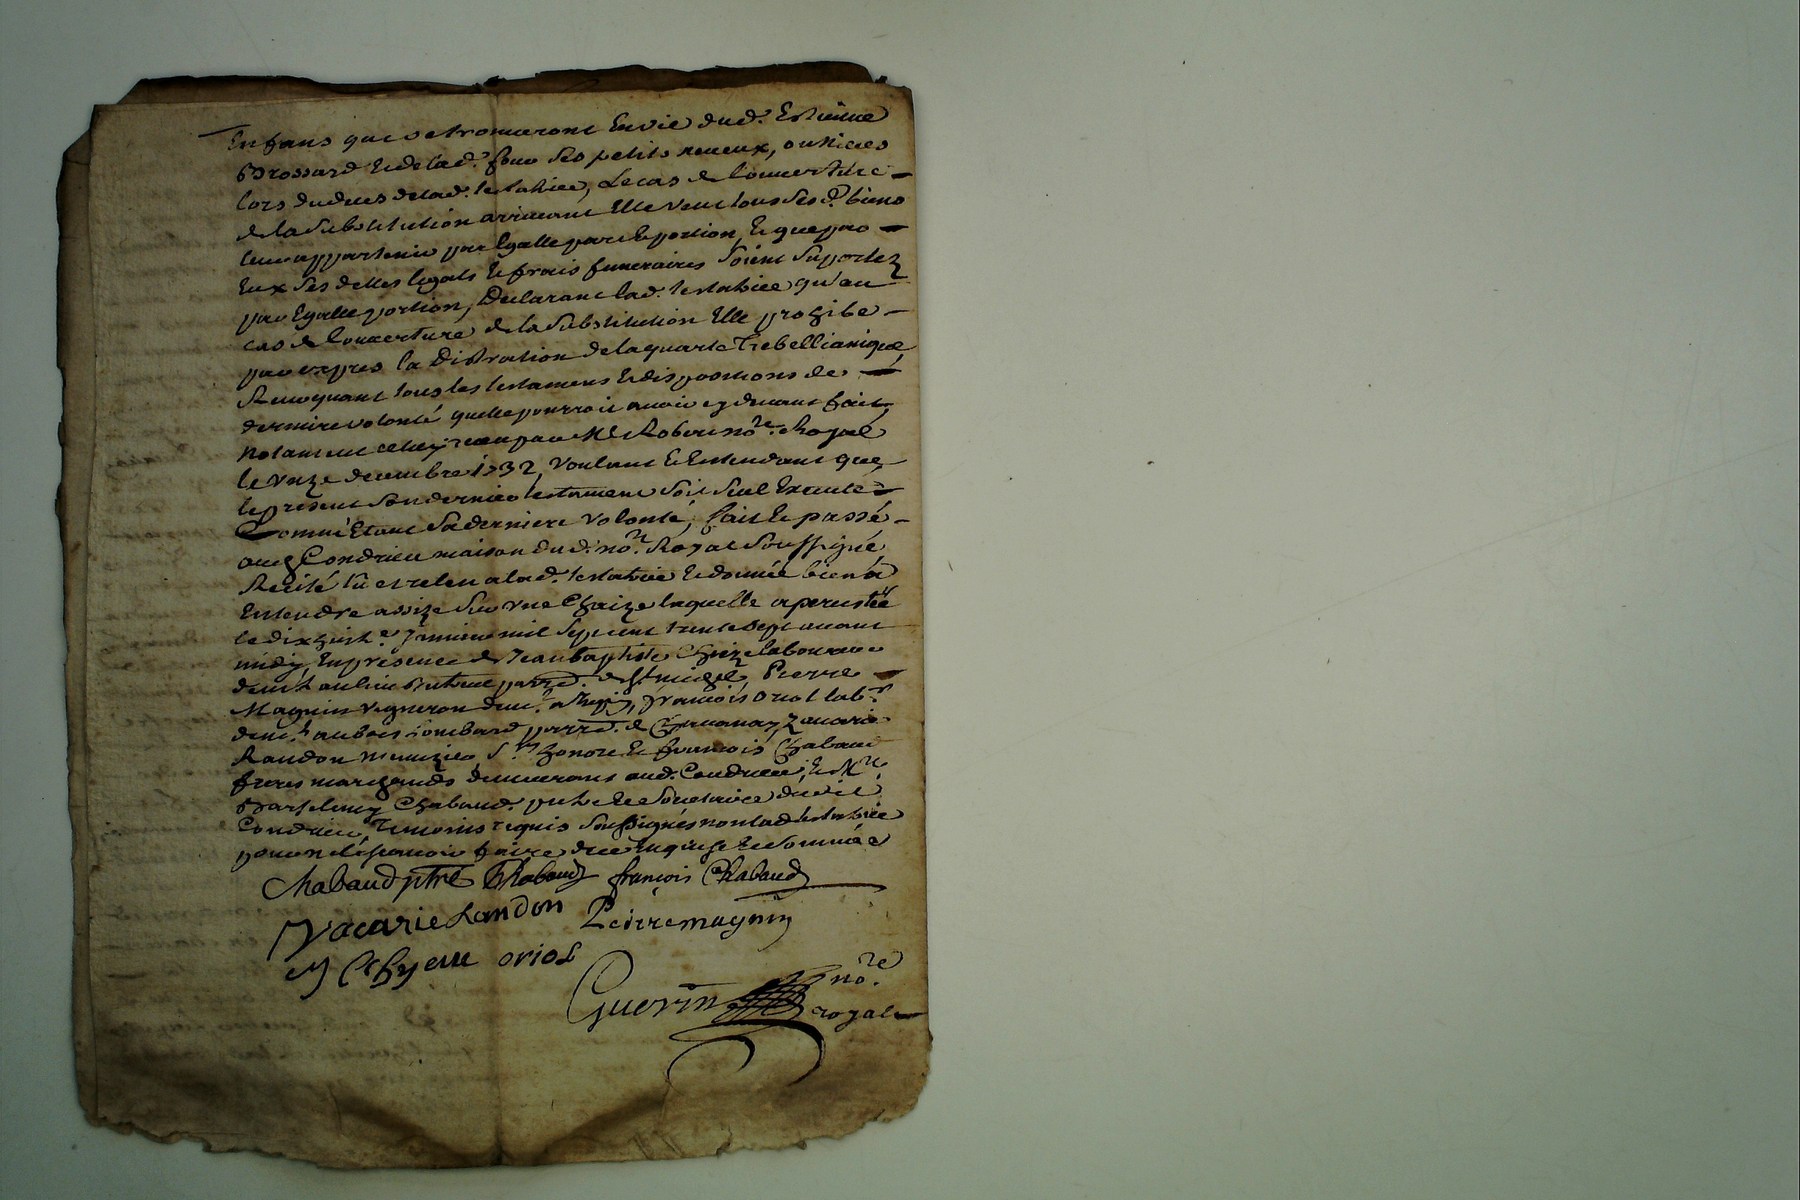 Enfans qui se trouveront En vie dud. Estienne
Brossard Et de lad. four ses petits neveux, ou nieces
lors du deces de lad. testatrice, Le cas de louverture
de la substitution arrivant Elle veut tous ses d. biens
leur appartenir par Egalle part et portion, Et que par
Eux ses dettes legats et frais funeraires soient suportez
par Egalle portion, Declarant lad. testatrice qu'au
cas de louverture de la substitution Elle prohibe
par expres la Distration de la quarte Trebellianique,
Revoquant tous les testamens Et dispositions de
derniere volonté quelle pourroit avoir cy devant fait,
notament celluy receu par Me Robert nore. Royal
le Unze decembre 1732, voulant Et Entendant que
le present son dernier testament soit seul Executé
Comme Etant sa derniere volonté, fait et passé
aud. Condrieu maison du d. nore. Royal soussigné
Recité lû et releu a lad. testatrice Et donné bien a
Entendre assize sur une Chaize laquelle a persisté
le dix huite. janvier mil sept cent trente sept avant
midy, En presence de Jean baptiste laboureur
demt. au lieu parre. de St. michel, Pierre
Magnin vigneron demt. a François Oriol labr.
demt. au bois lombard parre. de Chavanay, Zacarie
Randon Srs. honoré Et françois Chabaud
freres marchands demeurans aud. Condrieu, Et Mre.
Barthelemy Chabaud ptre Et Societaire dudit
Condrieu, Temoins requis soussignés non lad. testatrice
pour ne sçavoir faire de ce Enquise Et sommée
Chabaud ptre Chabaud françois Chabaud
Zacarie Randon Peirre magnin
oriol
Guerin nore.
royal